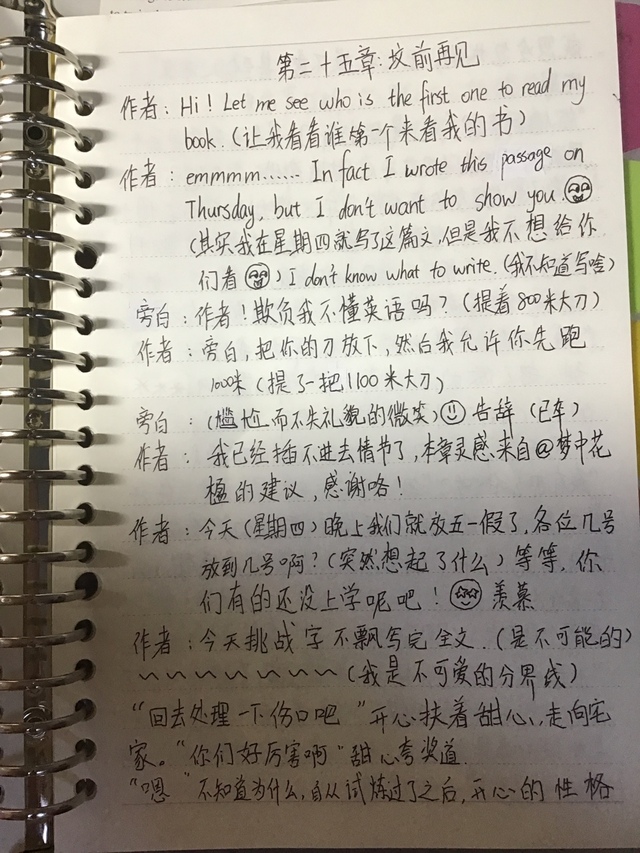 第二十五章:坟前再见
作者:Hi! Let me see who is the first one to read my
book.(让我看看谁第一个来看我的书)
作者:emmmm...... In fact I wrote this passage on
Thursday, but I don't want to show you.
(其实我在星期四就写了这篇文,但是我不想给你
们看) I don't know what to write.(我不知道写啥)
旁白:作者!欺负我不懂英语吗?(提着800米大刀)
作者:旁白,把你的刀放下,然后我允许你先跑
1000米(提了一把1100米大刀)
旁白:(尴尬而不失礼貌的微笑)告辞(已卒)
作者:我已经插不进去情节了,本章灵感来自@梦中花
楹的建议,感谢咯!
作者:今天(星期四)晚上我们就放五一假了,各位几号
放到几号啊?(突然想起了什么)等等,你
们有的还没上学呢吧!羡慕
作者:今天挑战字不飘写完全文.(是不可能的)
~~~~~~~(我是不可爱的分界线)
“回去处理一下伤口吧”开心扶着甜心,走向宅
家。“你们好厉害啊”甜心夸奖道.
“嗯”不知道为什么,自从试炼过了之后,开心的性格